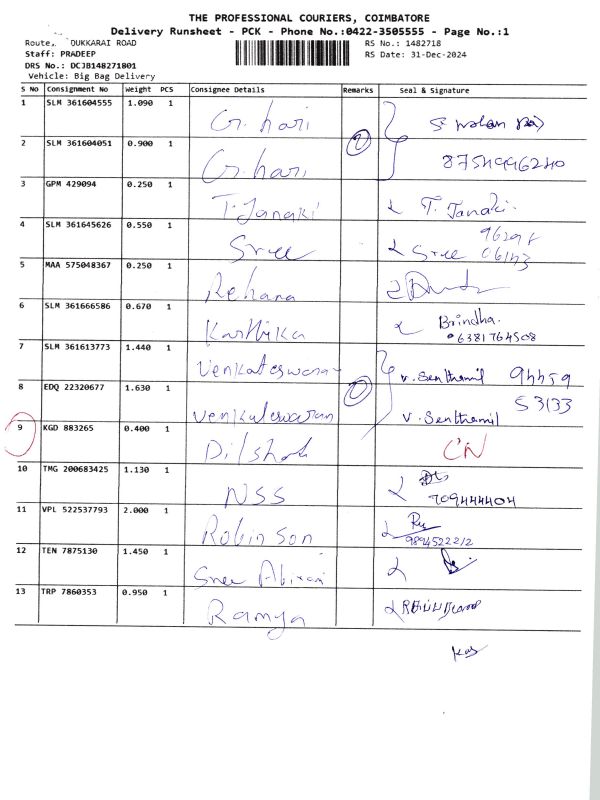 THE PROFESSIONAL COURIERS, COIMBATORE
Delivery Runsheet - PCK - Phone No.:0422-3505555 - Page No.:1
Route, DUKKARAI ROAD
RS No.: 1482718
Staff: PRADEEP
RS Date: 31-Dec-2024
DRS No.: DCJB148271801
Vehicle: Big Bag Delivery
S No Consignment No Weight PCS Consignee Details Remarks Seal & Signature
1 SLM 361604555 1.090 1 Gr. hari
2 SLM 361604051 0.900 1 Gr. hari 2 8754996240
3 GPM 429094 0.250 1 T. Janaki T. Janaki.
4 SLM 361645626 0.550 1 Sree Sree
5 MAA 575048367 0.250 1 Rehana
6 SLM 361666586 0.670 1 Karthika Brindha.
6381764508
7 SLM 361613773 1.440 1 Venkateswaran V. Senthamil 94459
8 EDQ 22320677 1.630 1 Venkateswaran 2 V. Senthamil 53133
9 KGD 883265 0.400 1 Dilshah CN
10 TMG 200683425 1.130 1 NSS
709444404
11 VPL 522537793 2.000 1 Robinson
9894522212
12 TEN 7875130 1.450 1 Sree Abirami
13 TRP 7860353 0.950 1 Ramya